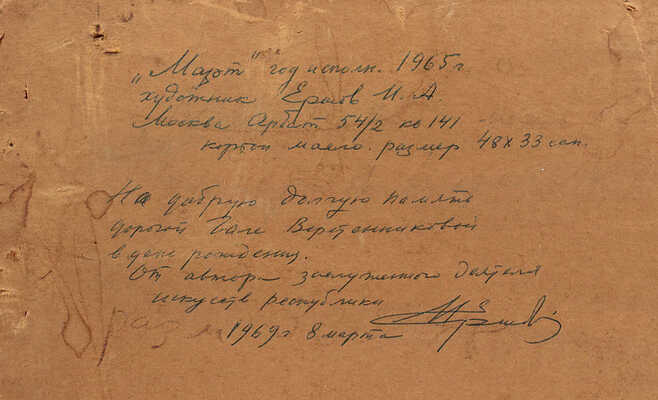 „Март“ год исполн. 1965 г.
художник Ершов И. А.
Москва Арбат 54/2 кв 141
картон масло. размер 48х33 сан.
На добрую долгую память
дорогой Вале Веретенниковой
в день рождения.
От автора заслуженного деятеля
искусств республики
1969 г 8 марта